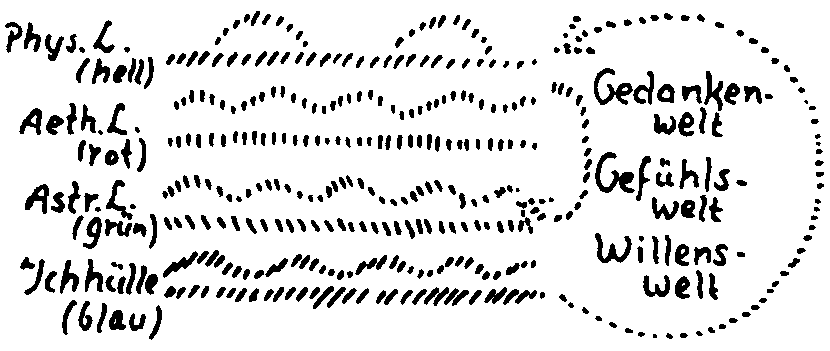 Phys. L.
(hell)
Aeth. L.
(rot)
Astr. L.
(grün)
Ichhülle
(blau)
Gedanken-
welt
Gefühls-
welt
Willens-
welt